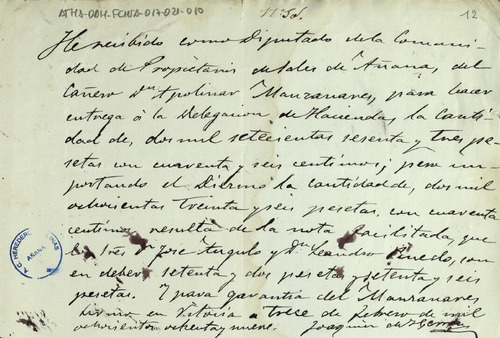 ATHA-DOH-FCHSA-017-021-010
12
He recibido como Diputado de la Comuni-
dad de Propietarios de Sales de Añana, del
Cartero Dn Apolinar Manzanares, para hacer
entrega á la Delegacion de Hacienda, la Canti-
dad de, dos mil setecientas sesenta y tres pe-
setas con cuarenta y seis centimos; pero im-
portando el Diezmo la cantidad de, dos mil
ochocientas treinta y seis pesetas, con cuarenta
centimos, resulta de la nota facilitada, que
los Sres Dn José Angulo y Dn Leandro Pinedo, son
en deber setenta y dos pesetas y setenta y seis
pesetas. Y para garantia del Manzanares
firmo en Vitoria a trece de febrero de mil
ochocientos ochenta y nueve. Joaquin de
A.C. HEREDEROS
AÑANA